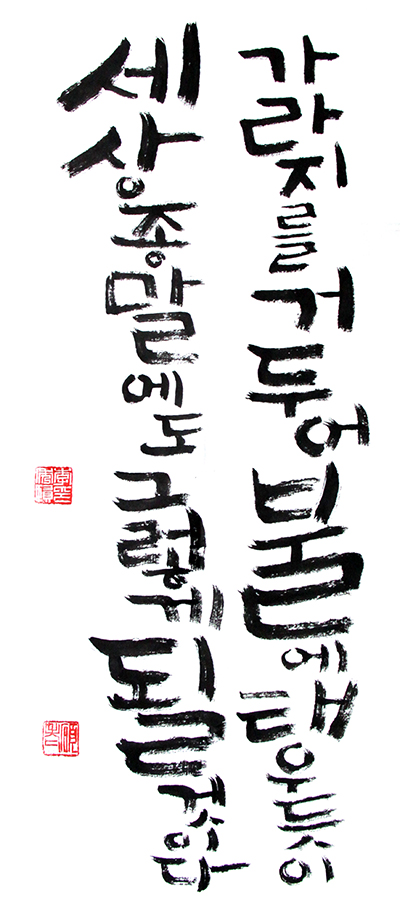 가라지를 거두어 불에 태우듯이
세상종말에도 그렇게 될 것이다